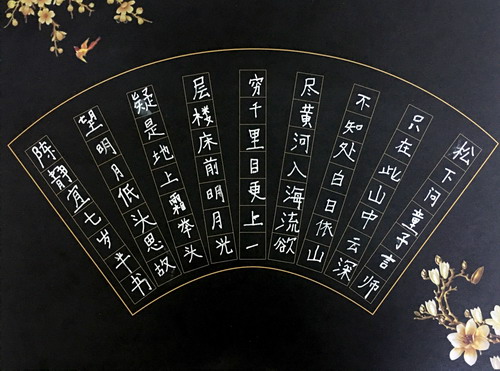 松下问童子言师
只在此山中云深
不知处白日依山
尽黄河入海流欲
穷千里目更上一
层楼床前明月光
疑是地上霜举头
望明月低头思故
陈静宜七岁半书